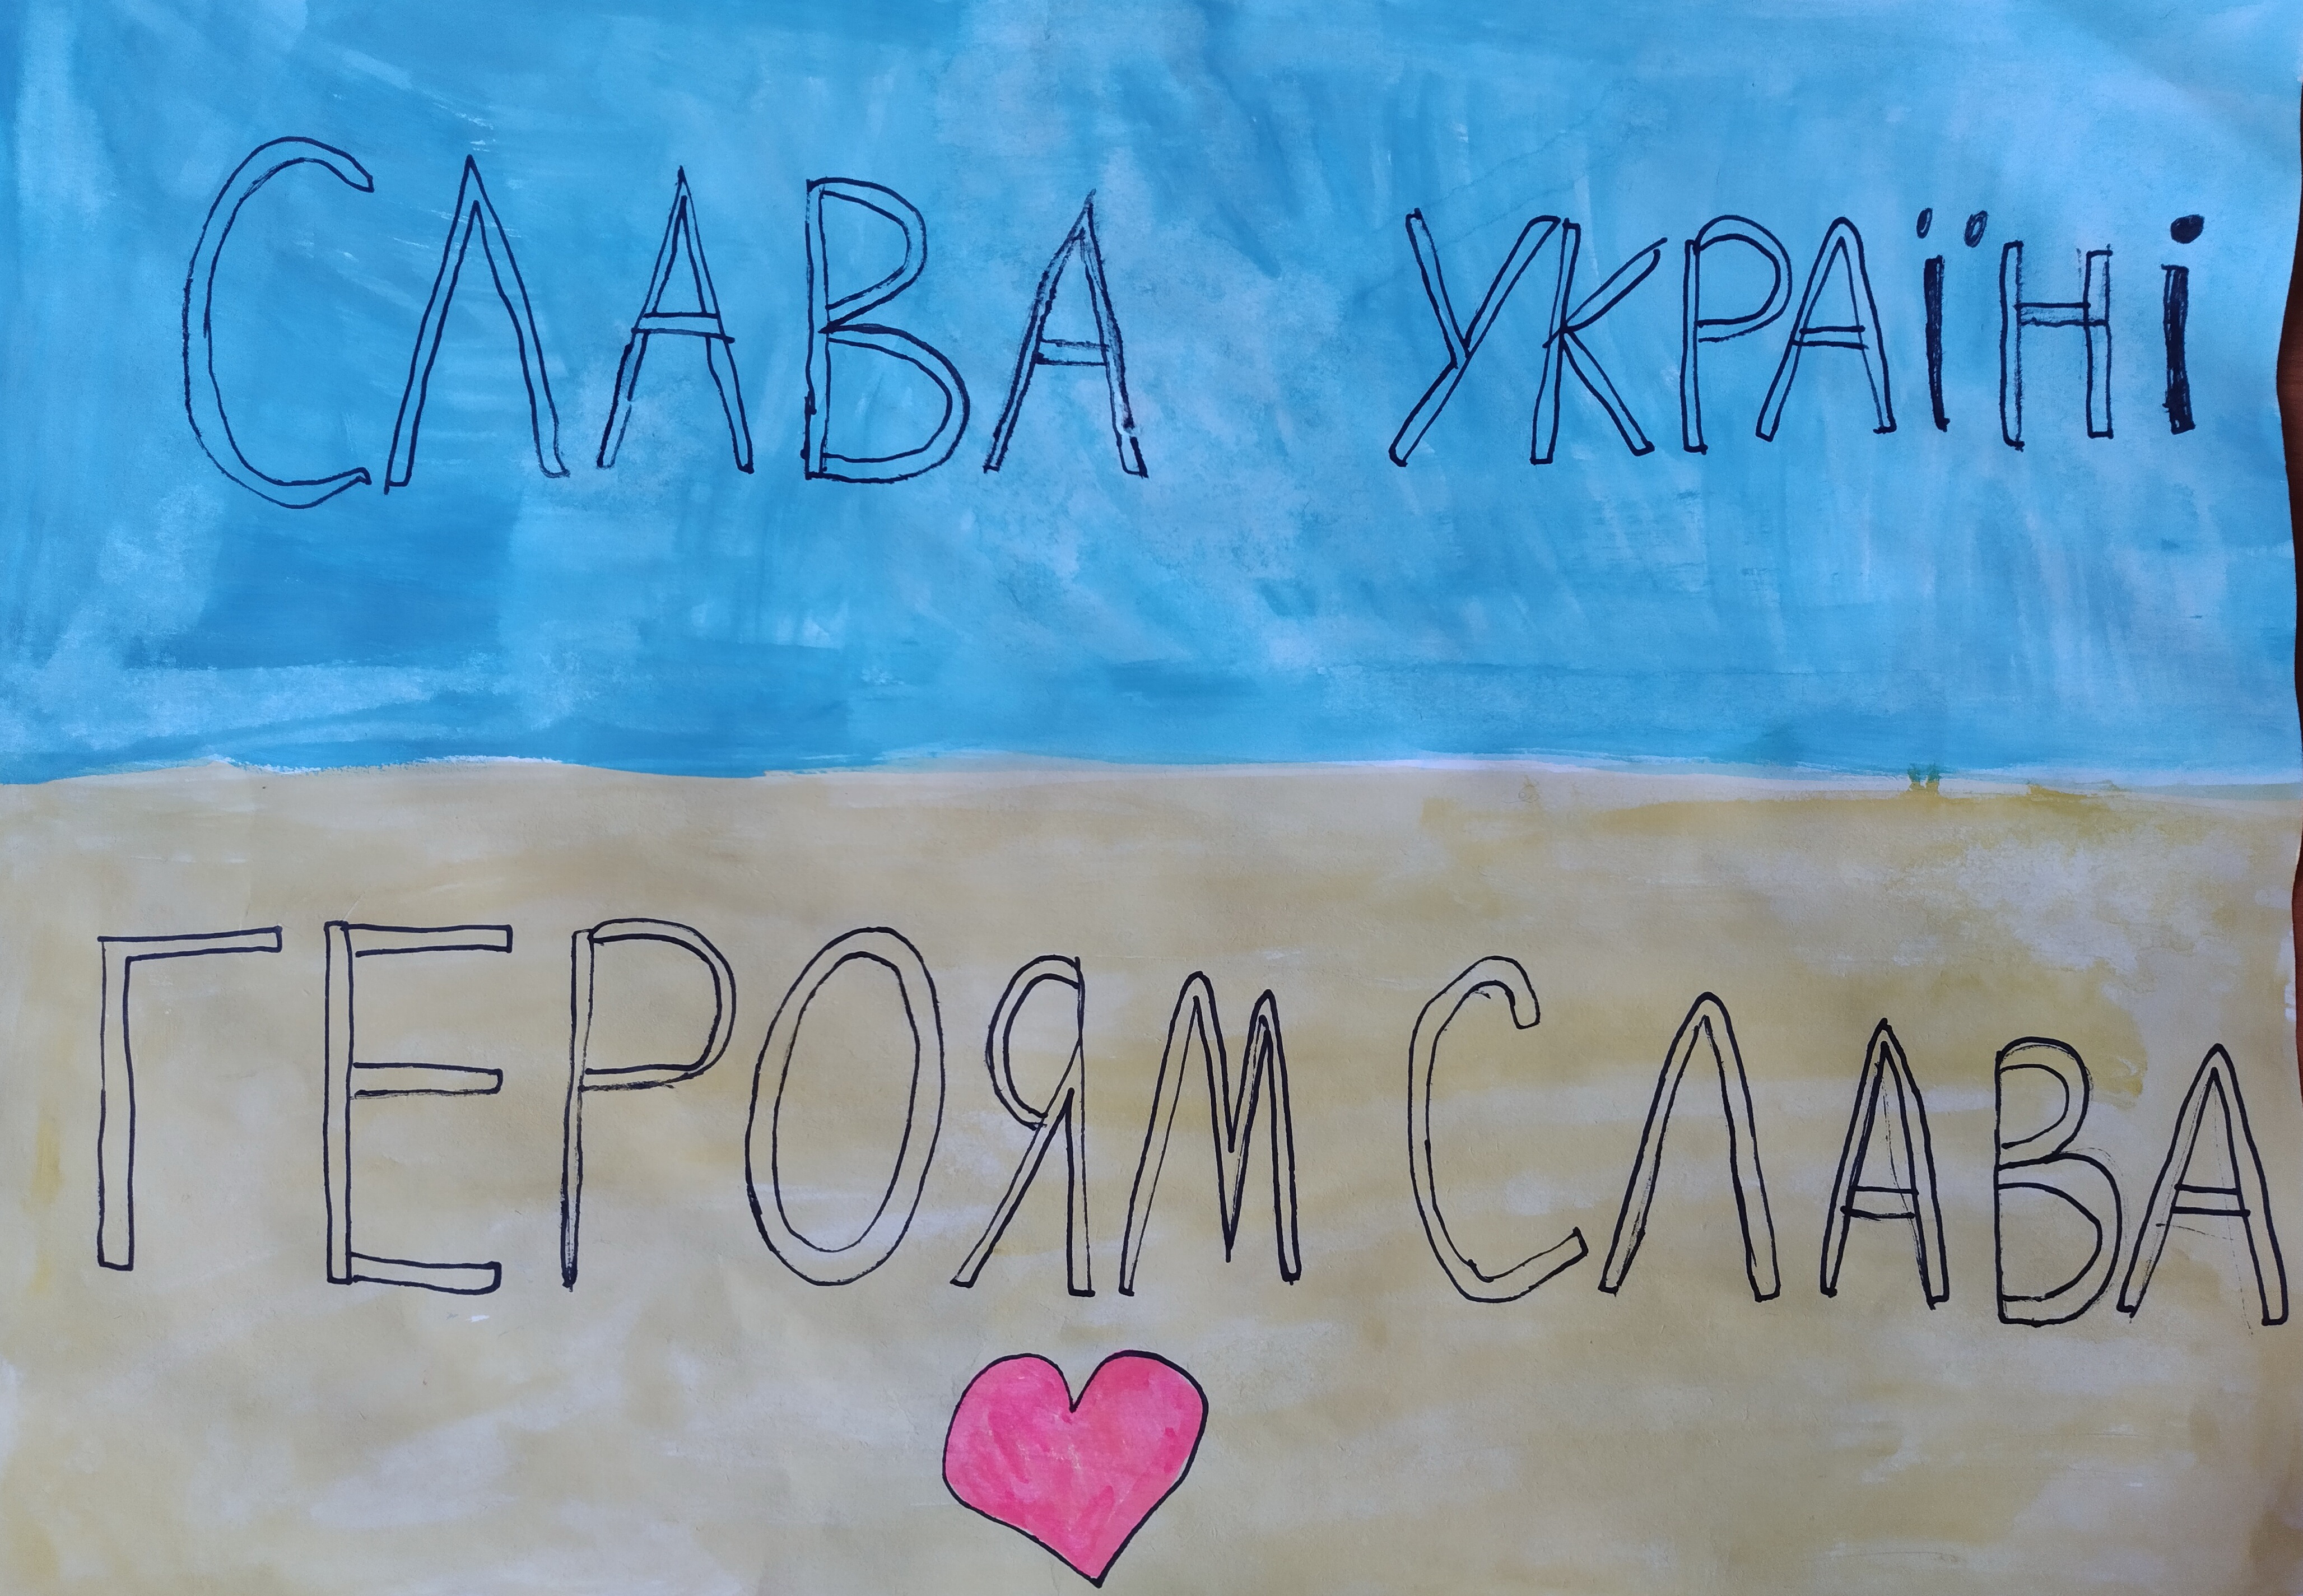 СЛАВА УКРАЇНІ
ГЕРОЯМ СЛАВА